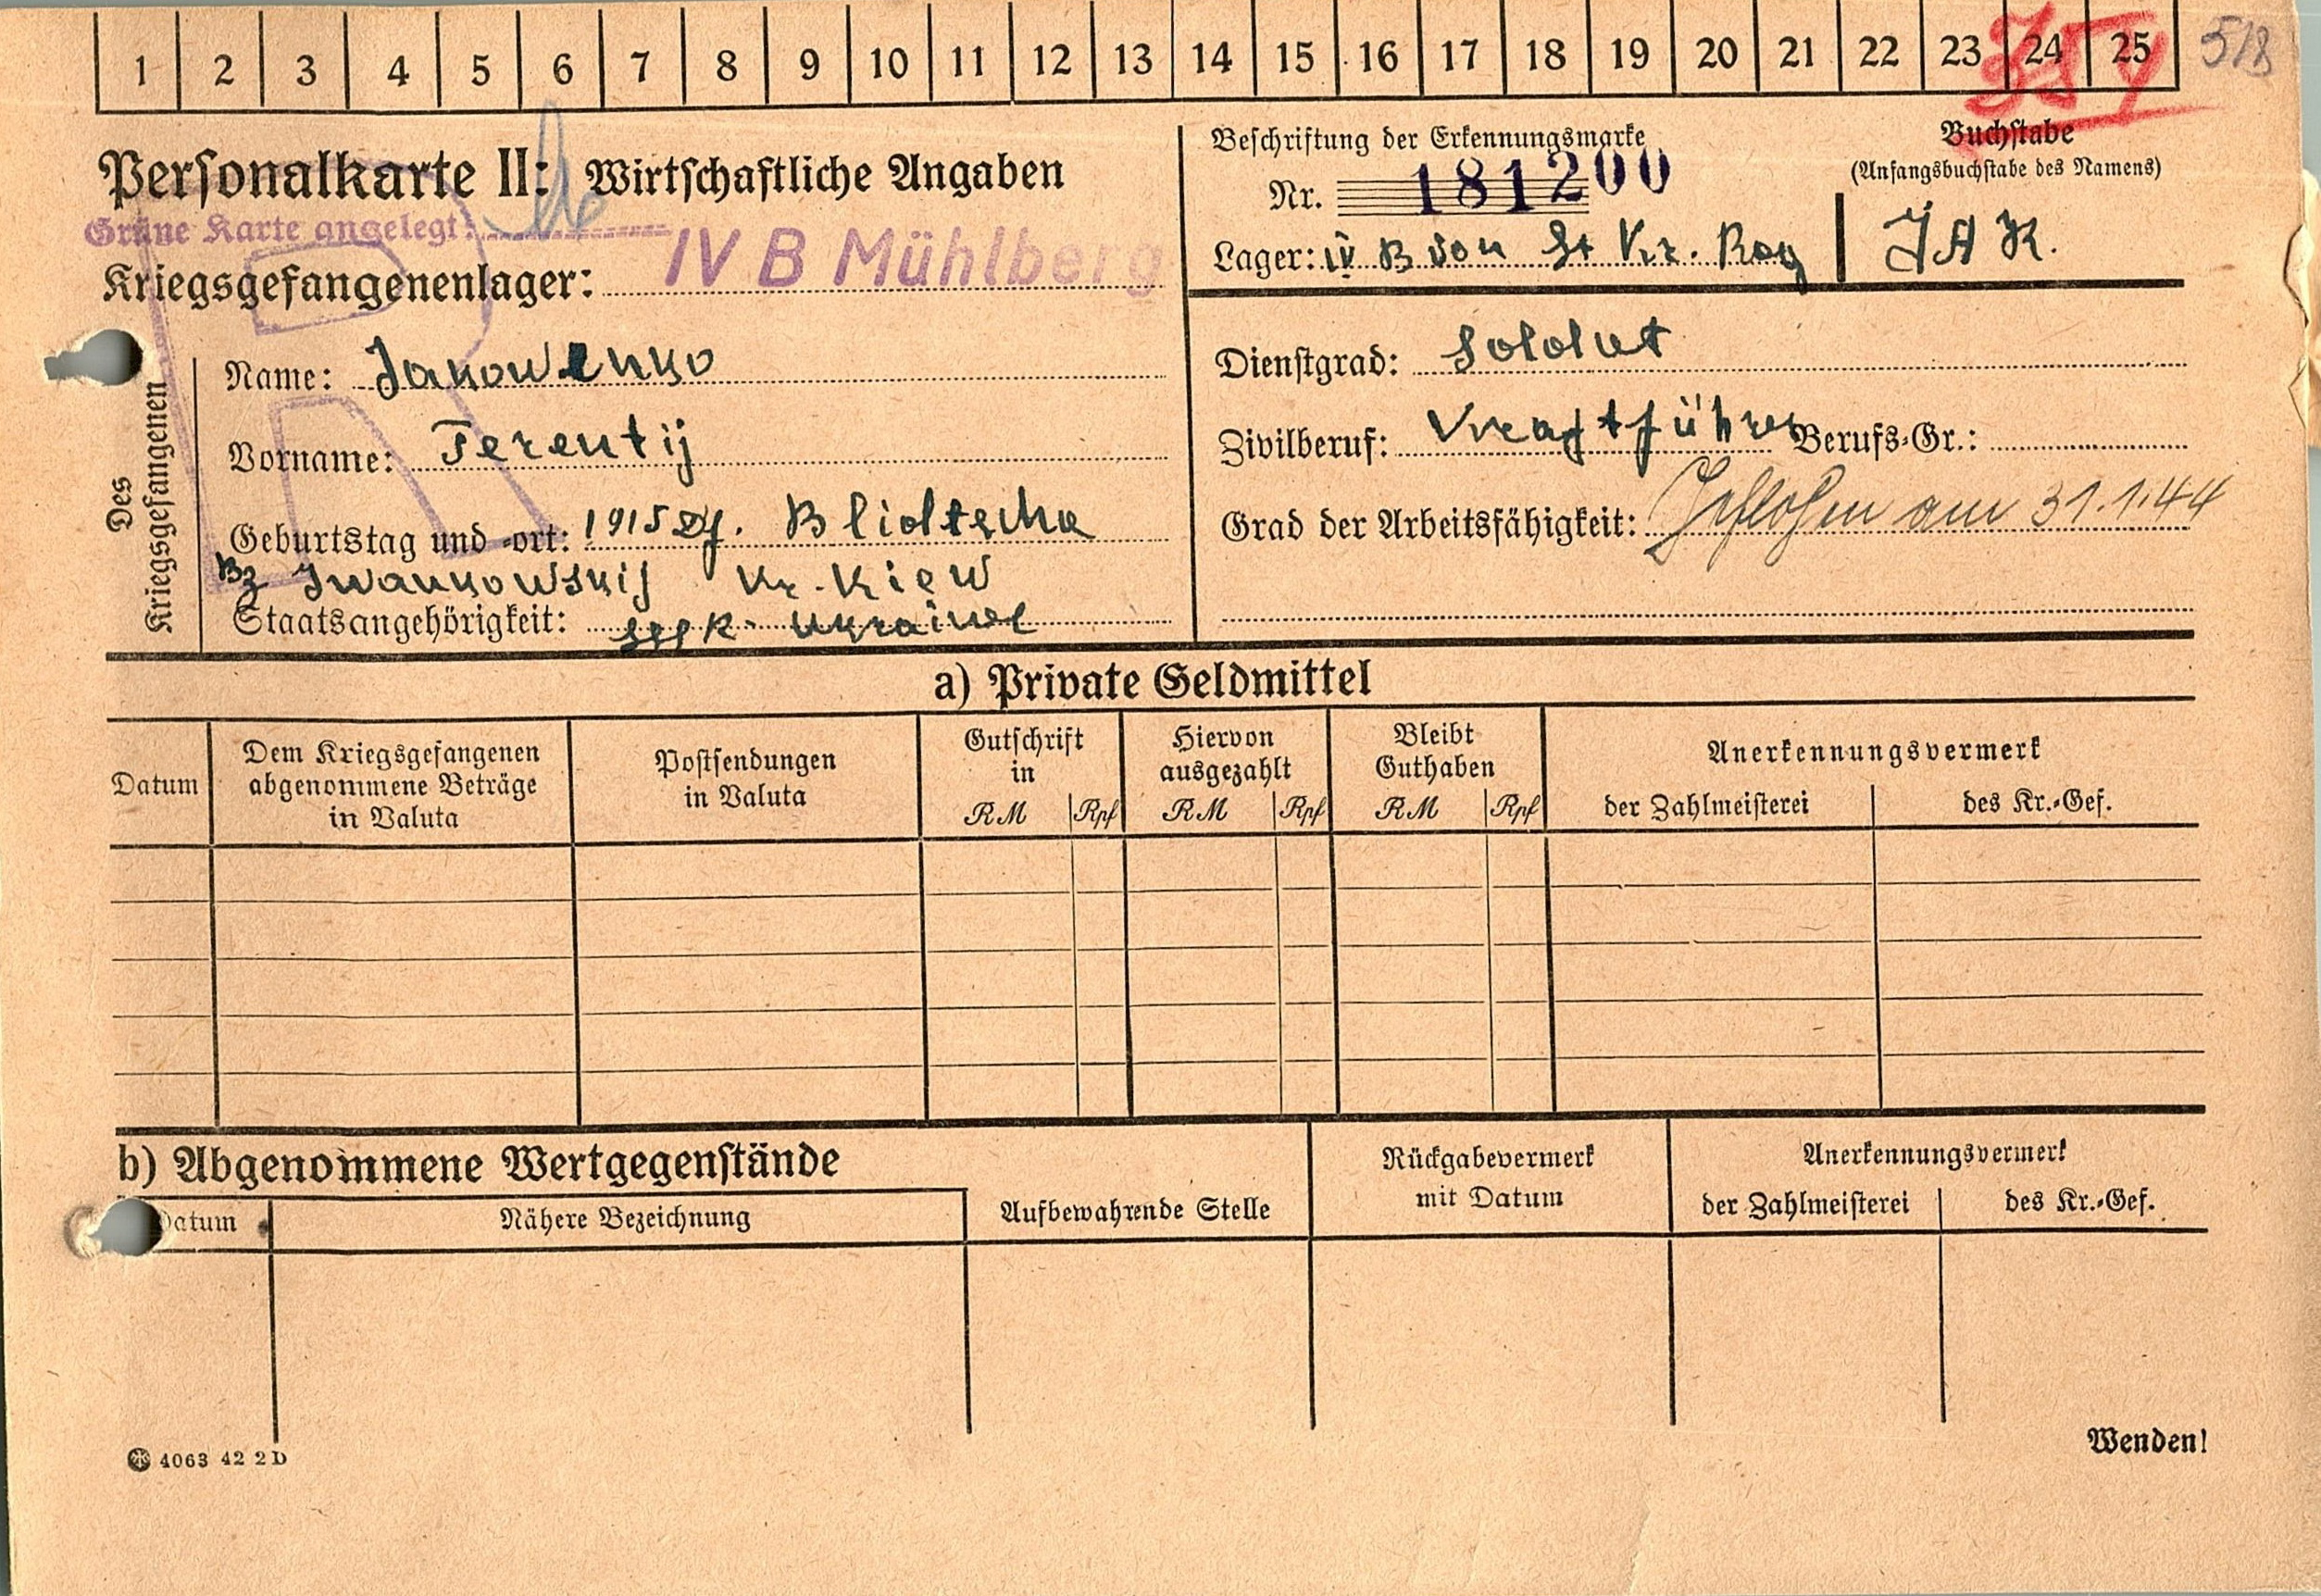 1 2 3 4 5 6 7 8 9 10 11 12 13 14 15 16 17 18 19 20 21 22 23 24 25
518
Personalkarte II: Wirtschaftliche Angaben
Grüne Karte angelegt:
Kriegsgefangenenlager: IV B Mühlberg
Beschriftung der Erkennungsmarke
Nr. 181200
Lager: IV B von St Kr. Rog
Buchstabe
(Anfangsbuchstabe des Namens)
JAK.
Des
Kriegsgefangenen
Name: Jakowenko
Vorname: Terentij
Geburtstag und -ort: 1915 Df. Blidtscha
Bz Iwankowskij Kr. Kiew
Staatsangehörigkeit: Ukraine
Dienstgrad: Soldat
Zivilberuf: Berufs-Gr.:
Grad der Arbeitsfähigkeit: Geflohen am 31.1.44
a) Private Geldmittel
Datum
Dem Kriegsgefangenen
abgenommene Beträge
in Valuta
Postsendungen
in Valuta
Gutschrift
in
RM Rpf
Hiervon
ausgezahlt
RM Rpf
Bleibt
Guthaben
RM Rpf
Anerkennungsvermerk
der Zahlmeisterei des Kr.-Gef.
b) Abgenommene Wertgegenstände
Datum Nähere Bezeichnung
Aufbewahrende Stelle
Rückgabevermerk
mit Datum
Anerkennungsvermerk
der Zahlmeisterei des Kr.-Gef.
4063 42 2 D
Wenden!